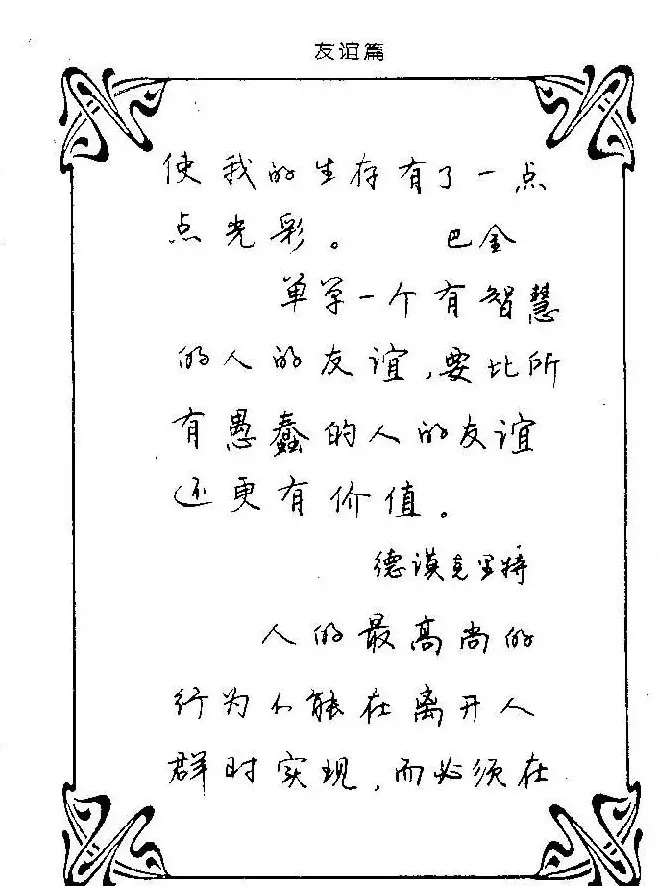 友谊篇
使我的生存有了一点
点光彩。 巴金
单单一个有智慧
的人的友谊,要比所
有愚蠢的人的友谊
还更有价值。
德谟克里特
人的最高尚的
行为不能在离开人
群时实现,而必须在